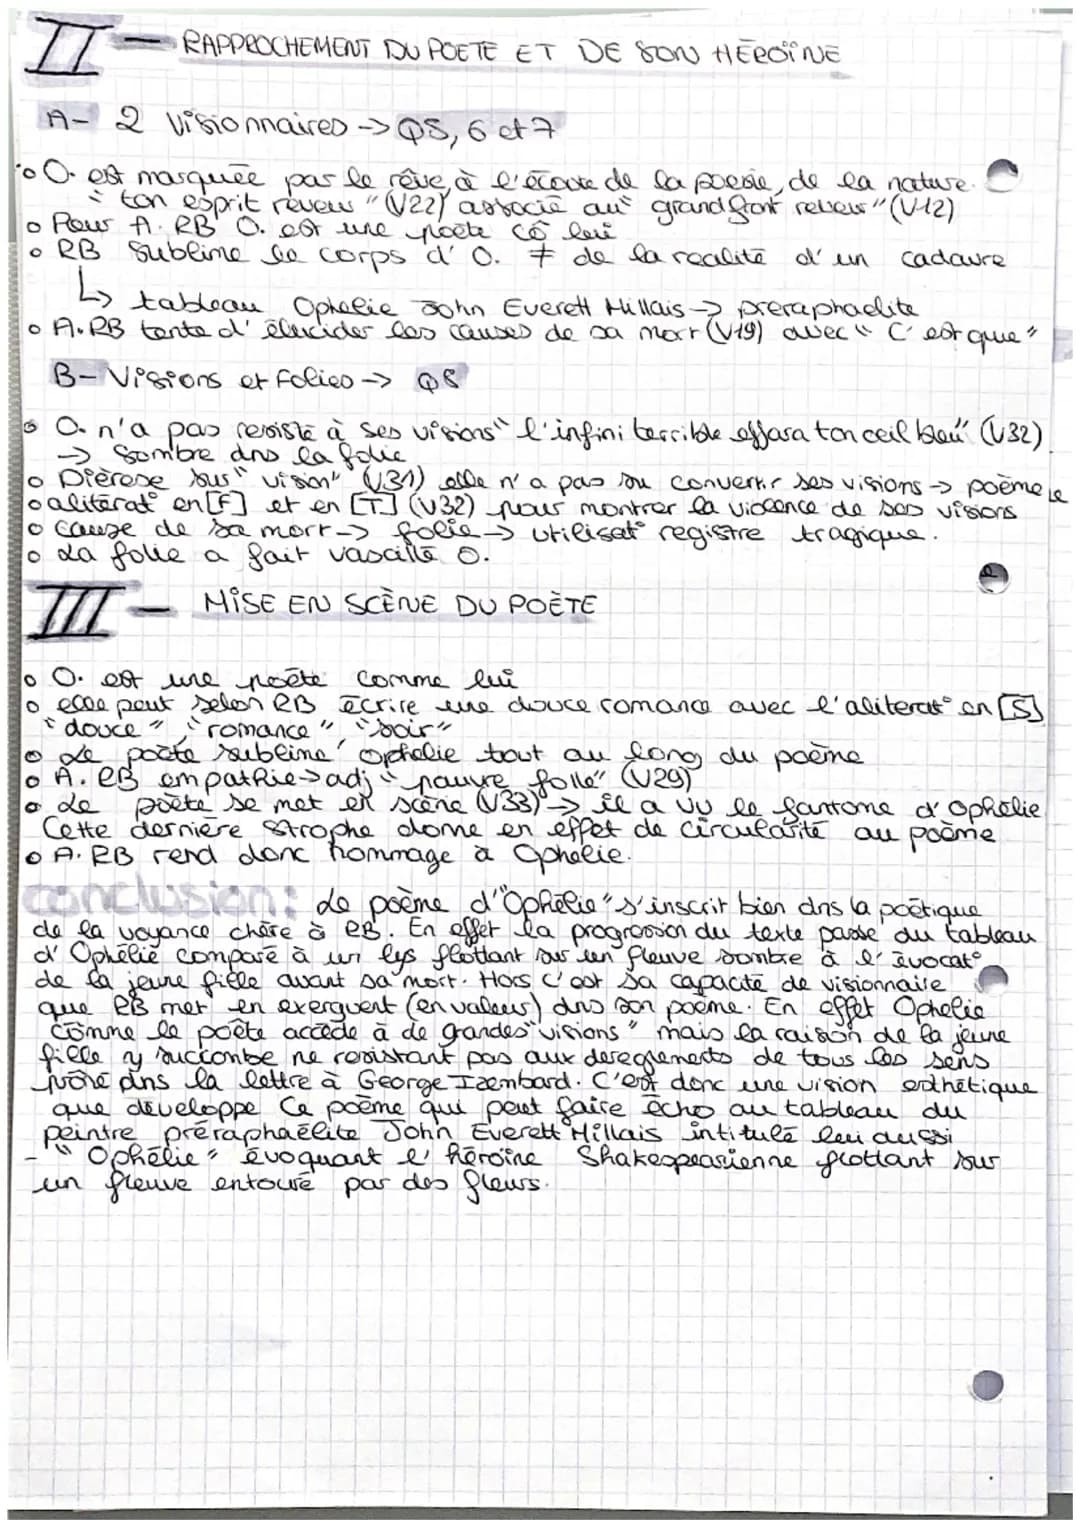 II - RAPPROCHEMENT DU POETE ET DE SON HÉROÏNE
A- 2 Visionnaires -> Q5, 6 et 7
o O. est marquée par le rêve, à l'écoute de la poesie, de la nature.
"ton esprit rêveur" (V22) associé au "grand front rêveur" (V12)
o Pour A. RB O. est une poète cô lui
o RB sublime le corps d'O. ≠ de la realité d'un cadavre
↳ tableau Ophelie John Everett Millais -> preraphaelite
o A. RB tente d'élucider les causes de sa mort (V19) avec "C'est que"
B- Visions et Folies -> Q8
o O. n'a pas resisté à ses visions "l'infini terrible effara ton oeil bleu" (V32)
-> Sombre dns la folie
o Dièrese sur "vision" (V31) elle n'a pas su convertir ses visions -> poème
o aliterat° en [F] et en [T] (V32) pour montrer la violence de ses visions
o cause de sa mort -> folie -> utilisat° registre tragique.
o La folie a fait vascillé O.
III - MISE EN SCÈNE DU POÈTE
o O. est une poète comme lui
o elle peut selon RB écrire une douce romance avec l'aliterat° en [S]
"douce", "romance", "soir"
o Le poète sublime Ophelie tout au long du poème
o A. RB empathie -> adj "pauvre folle" (V29)
o Le poète se met en scène (V33) -> il a vu le fantome d'Ophélie
Cette dernière strophe donne en effet de circularité au poème
o A. RB rend donc hommage à Ophelie.
conclusion: Le poème d'"Ophélie" s'inscrit bien dns la poétique
de la voyance chère à RB. En effet la progression du texte passe du tableau
d'Ophélie comparé à un lys flottant sur un fleuve sombre à l'évocat°
de la jeune fille avant sa mort. Hors c'est sa capacité de visionnaire
que RB met en exerguent (en valeur) dns son poème. En effet Ophelie
comme le poète accède à de grandes "visions" mais la raison de la jeune
fille y succombe ne resistant pas aux dereglements de tous les sens
prôné dns la lettre à George Izembard. C'est donc une vision esthétique
que développe Ce poème qui peut faire écho au tableau du
peintre préraphaëlite John Everett Millais intitulé lui aussi
"Ophélie" évoquant l'héroïne Shakespearienne flottant sur
un fleuve entouré par des fleurs.